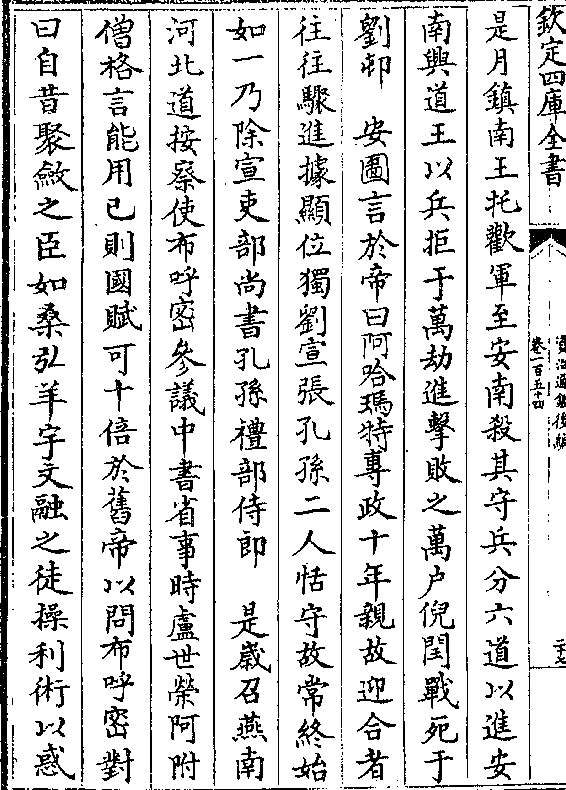 欽定四庫全書
資治通鑑後編
卷一百五十四
是月鎮南王托歡軍至安南殺其守兵分六道以進安
南興道王以兵拒于萬劫進擊敗之萬户倪閏戰死于
劉邨　安圖言於帝曰阿哈瑪特專政十年親故迎合者
往往驟進據顯位獨劉宣張孔孫二人恬守故常終始
如一乃除宣吏部尚書孔孫禮部侍郎　是歲召燕南
河北道按察使布呼密參議中書省事時盧世榮阿附
僧格言能用己則國賦可十倍於舊帝以問布呼密對
曰自昔聚斂之臣如桑弘羊宇文融之徒操利術以惑